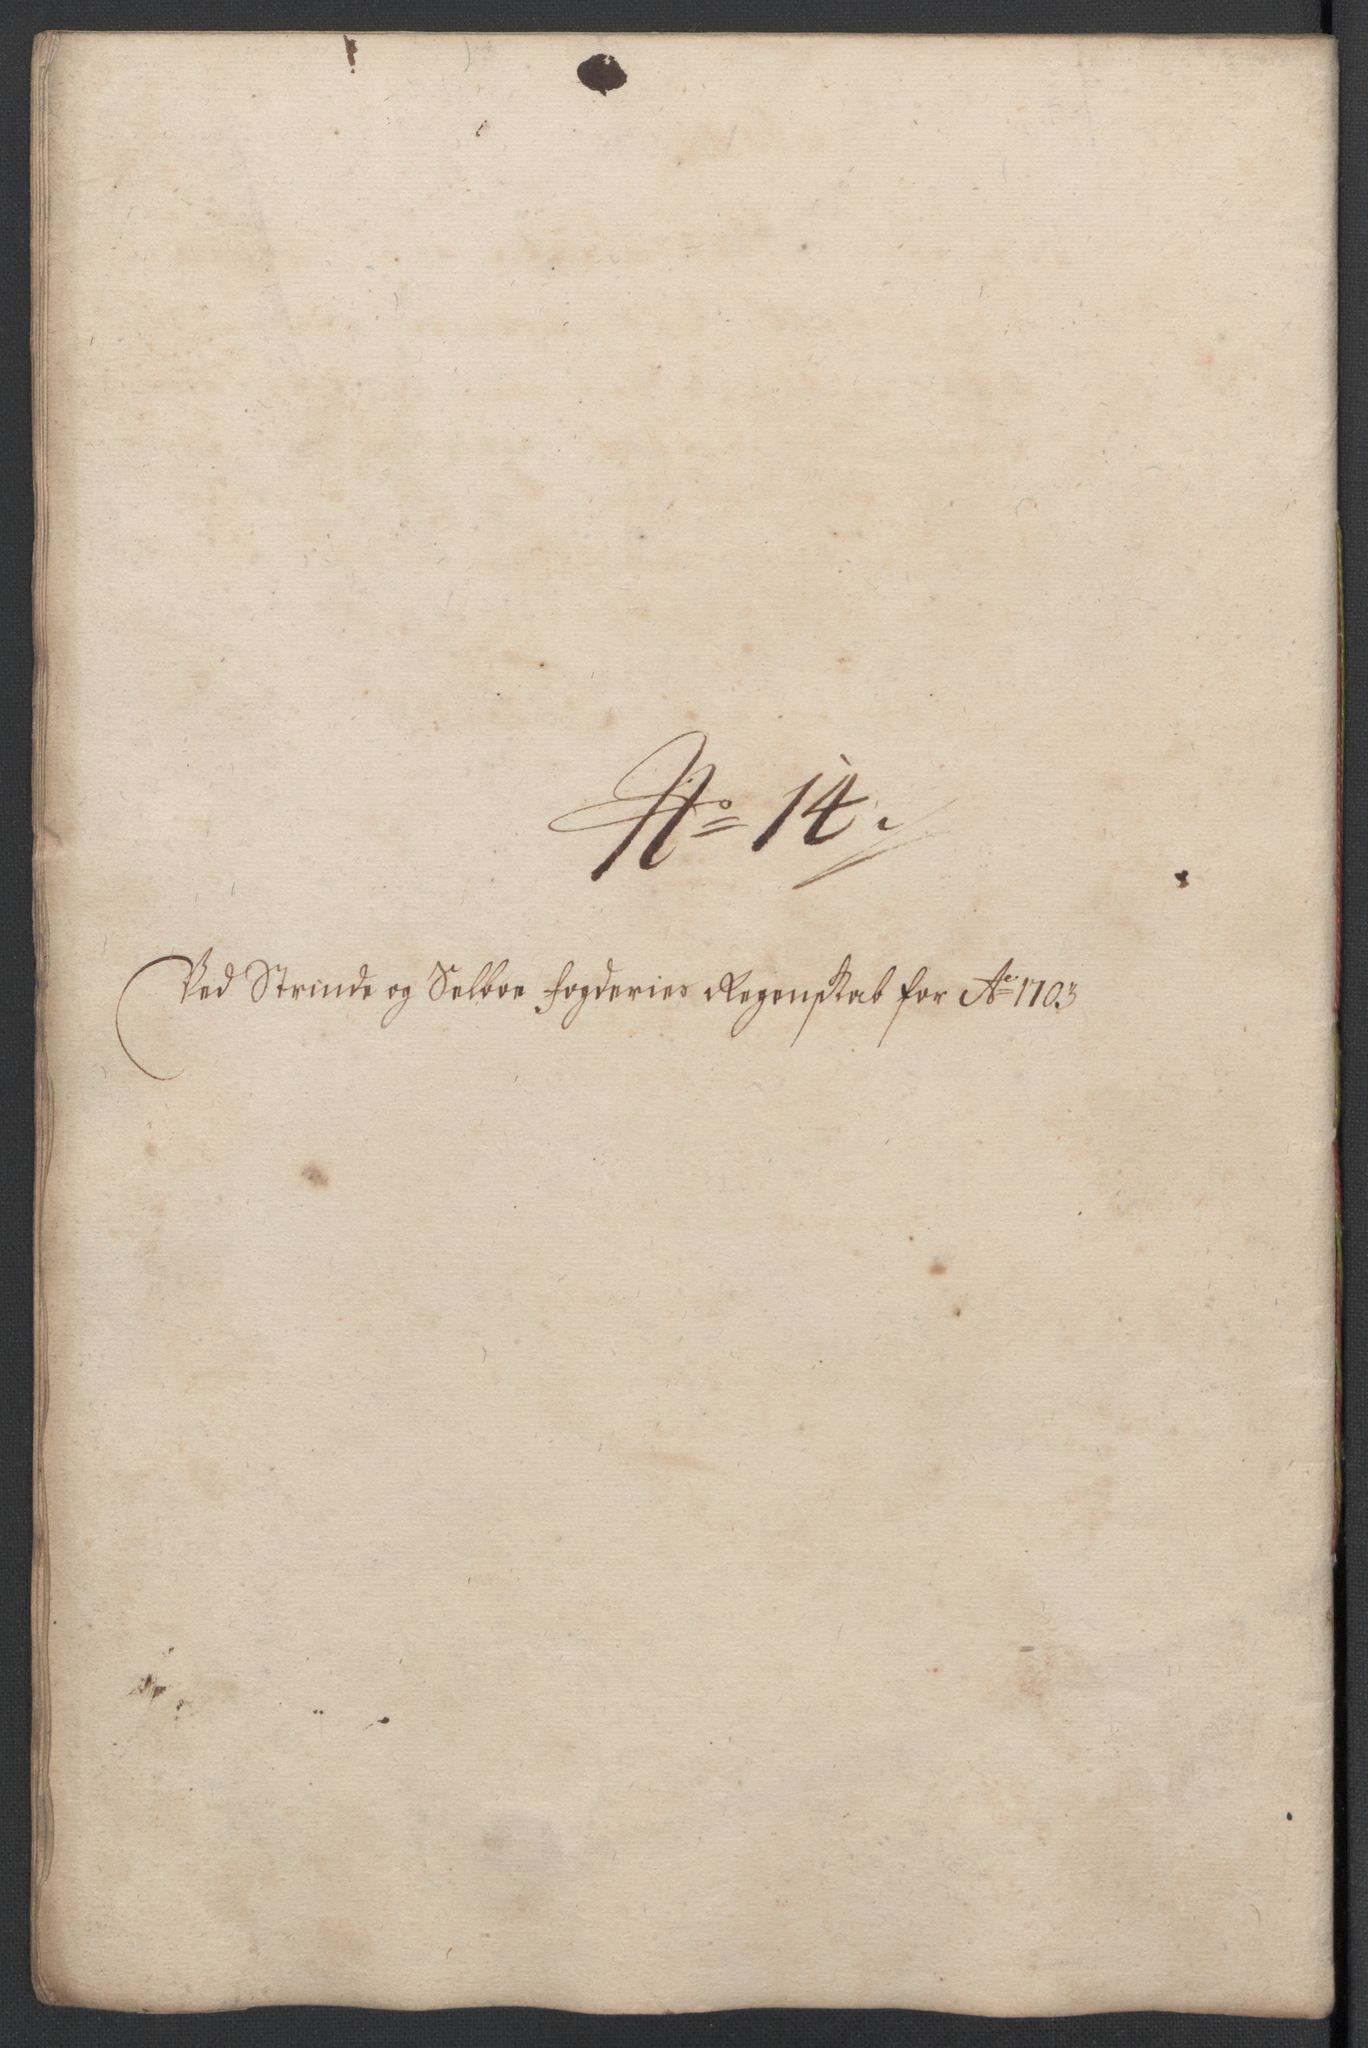 No 14.
Ved Strinde og Selboe fogderies Regenskab for Ao 1703